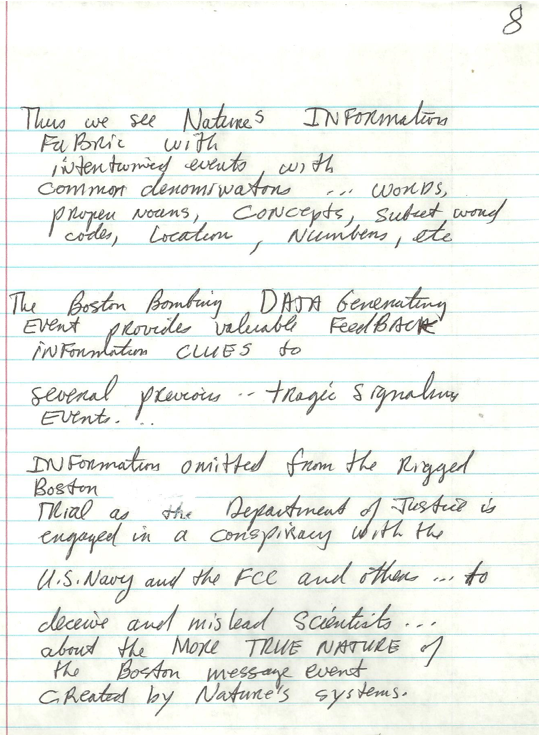 8
Thus we see Nature's INFormation
FaBric with
intentwined events with
Common denominators ... WORDS,
proper Nouns, CONCEPTS, subset word
codes, Location , Numbers, etc
The Boston Bombing DATA Generating
EVENT provides valuable FeedBACK
iNFormation CLUES to
several previous -- tragic Signaling
EVENTs. ..
INFormation omitted from the Rigged
Boston
TRial as the Department of Justice is
engaged in a conspiracy with the
U.S. Navy and the FCC and others ... to
deceive and mislead Scientists ...
about the MORE TRUE NATURE of
the Boston message event
CReated by Nature's systems.